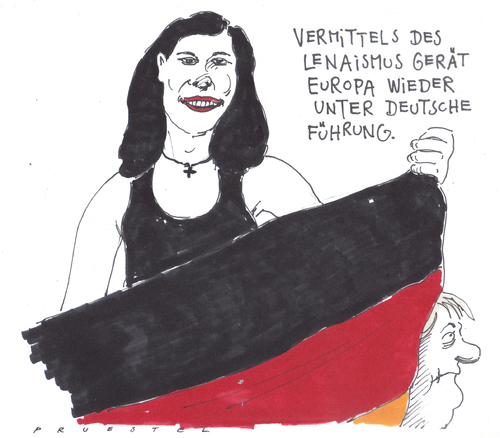 VERMITTELS DES
LENAISMUS GERÄT
EUROPA WIEDER
UNTER DEUTSCHE
FÜHRUNG.
PRUESTEL